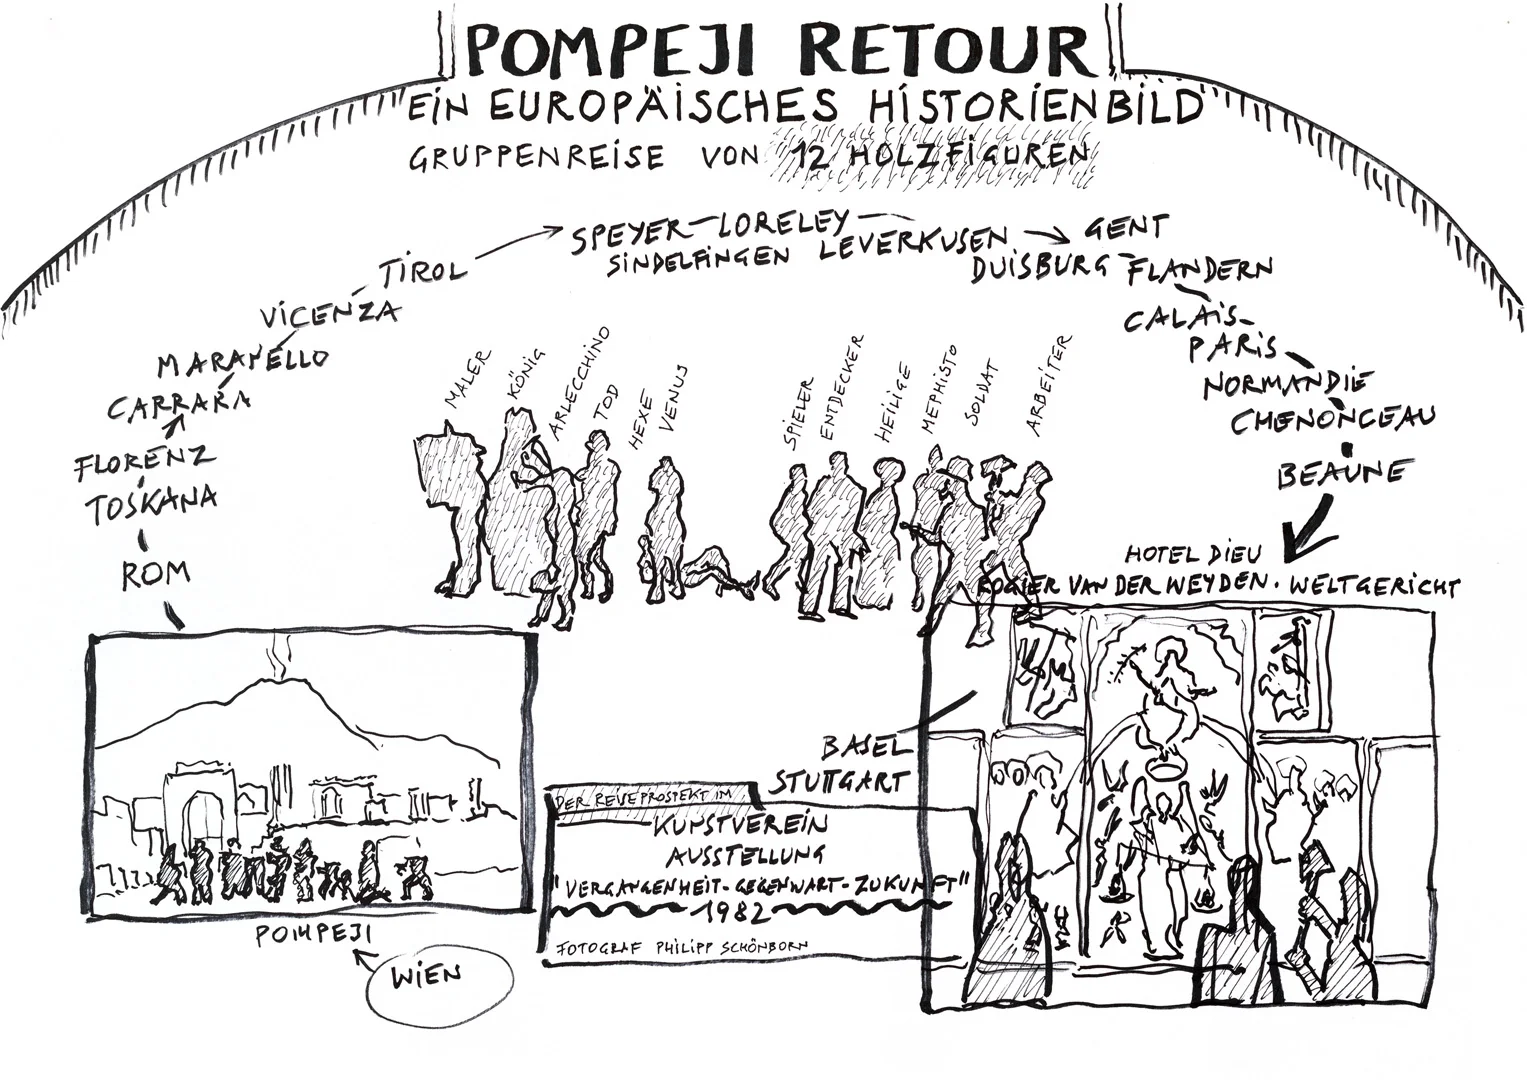 POMPEJI RETOUR
"EIN EUROPÄISCHES HISTORIENBILD"
GRUPPENREISE VON 12 HOLZFIGUREN
SPEYER-LORELEY
SINDELFINGEN LEVERKUSEN
GENT
DUISBURG-FLANDERN
TIROL
VICENZA
MARANELLO
CARRARA
FLORENZ
TOSKANA
ROM
CALAIS-
PARIS
NORMANDIE
CHENONCEAU
BEAUNE
MALER
KÖNIG
ARLECCHINO
TOD
HEXE
VENUS
SPIELER
ENTDECKER
HEILIGE
MEPHISTO
SOLDAT
ARBEITER
HOTEL DIEU
ROGIER VAN DER WEYDEN. WELTGERICHT
BASEL
STUTTGART
DER REISEPROSPEKT IM
KUNSTVEREIN
AUSSTELLUNG
"VERGANGENHEIT-GEGENWART-ZUKUNFT"
1982
FOTOGRAF PHILIPP SCHÖNBORN
POMPEJI
WIEN